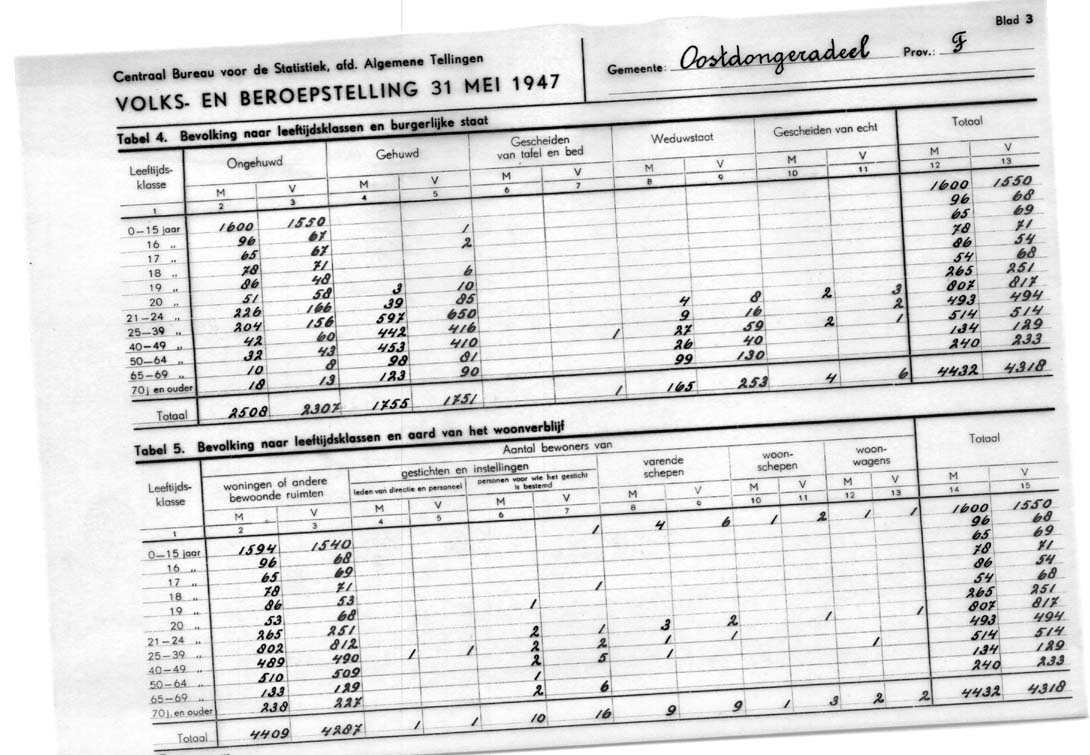 Blad 3
Centraal Bureau voor de Statistiek, afd. Algemene Tellingen
VOLKS- EN BEROEPSTELLING 31 MEI 1947
Gemeente: Oostdongeradeel Prov.: F
Tabel 4. Bevolking naar leeftijdsklassen en burgerlijke staat
Leeftijds-
klasse
Ongehuwd Gehuwd Gescheiden
van tafel en bed
Weduwstaat Gescheiden van echt Totaal
M V M V M V M V M V M V
1 2 3 4 5 6 7 8 9 10 11 12 13
0—15 jaar 1600 1550 1600 1550
16 „ 96 67 1 96 68
17 „ 65 67 2 65 69
18 „ 78 71 78 71
19 „ 86 48 6 86 54
20 „ 51 58 3 10 54 68
21—24 „ 226 166 39 85 265 251
25—39 „ 204 156 597 650 4 8 2 3 807 817
40—49 „ 42 60 442 416 9 16 2 493 494
50—64 „ 32 43 453 410 1 27 59 2 1 514 514
65—69 „ 10 8 98 81 26 40 134 129
70 j en ouder 18 13 123 90 99 130 240 233
Totaal 2508 2307 1755 1751 1 165 253 4 6 4432 4318
Tabel 5. Bevolking naar leeftijdsklassen en aard van het woonverblijf
Leeftijds-
klasse
Aantal bewoners van
woningen of andere
bewoonde ruimten
gestichten en instellingen
leden van directie en personeel
personen voor wie het gesticht
is bestemd
varende
schepen
woon-
schepen
woon-
wagens
Totaal
M V M V M V M V M V M V M V
1 2 3 4 5 6 7 8 9 10 11 12 13 14 15
0—15 jaar 1594 1540 1 4 6 1 2 1 1 1600 1550
16 „ 96 68 96 68
17 „ 65 69 65 69
18 „ 78 71 78 71
19 „ 86 53 1 86 54
20 „ 53 68 1 54 68
21—24 „ 265 251 265 251
25—39 „ 802 812 2 1 3 2 1 1 807 817
40—49 „ 489 490 1 1 2 2 1 1 493 494
50—64 „ 510 509 2 5 1 1 514 514
65—69 „ 133 129 1 134 129
70 j. en ouder 238 227 2 6 240 233
Totaal 4409 4287 1 1 10 16 9 9 1 3 2 2 4432 4318